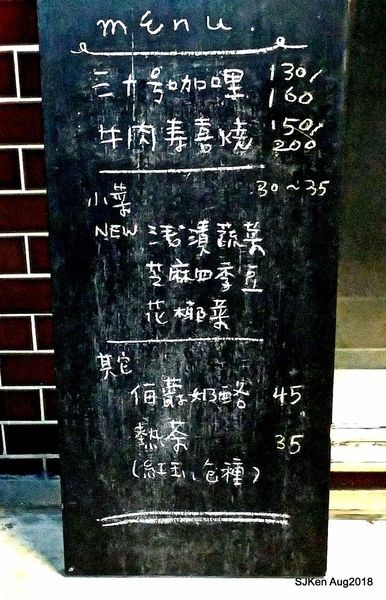 menu.
三十号咖哩 130/160
牛肉壽喜燒 150/200
小菜 30~35
NEW 淺漬蔬菜
芝麻四季豆
花椰菜
其它
奶酪 45
熱茶 35
(紅玉、包種)
SJKen Aug2018